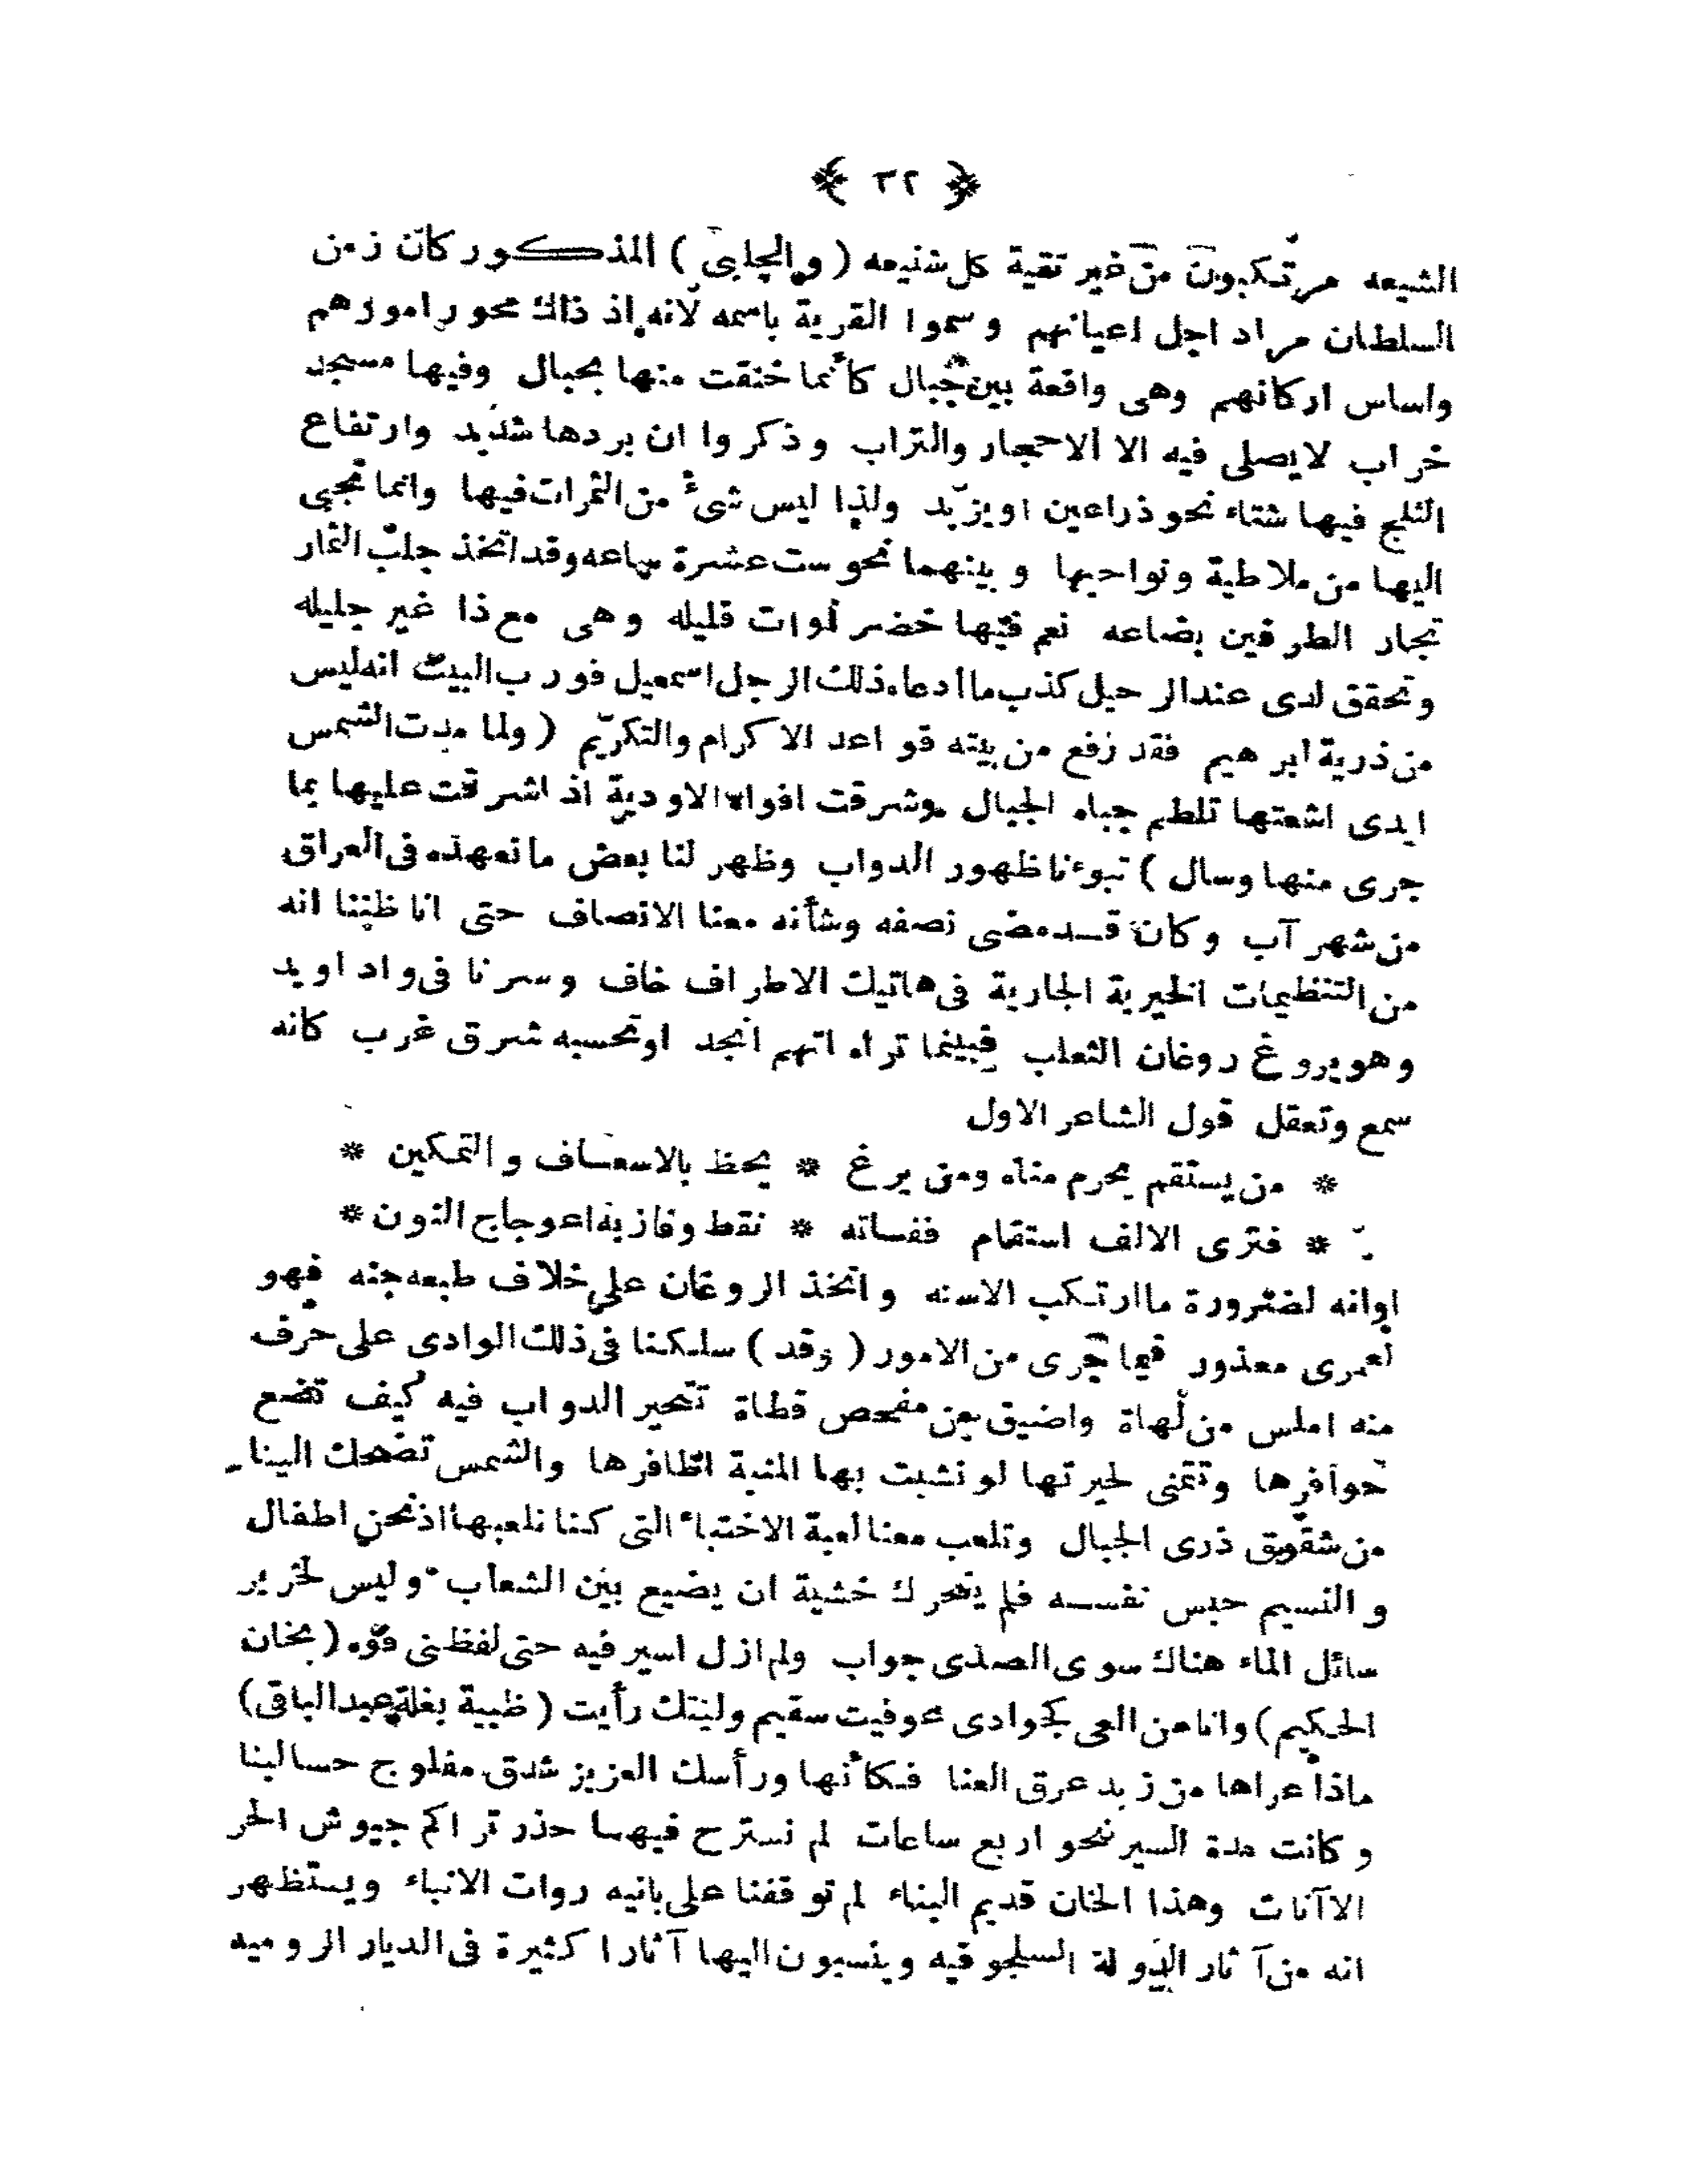 ﴿ ٣٢ ﴾
الشيعه مرتكبون من غير تقية كل شنيعه ( والچلبى ) المذكور كان زمن
السلطان مراد اجل اعيانهم وسموا القرية باسمه لانه اذ ذاك محور امورهم
واساس اركانهم وهى واقعة بين جبال كأنما خنقت منها بحبال وفيها مسجد
خراب لايصلى فيه الا الاحجار والتراب وذكروا ان بردها شديد وارتفاع
الثلج فيها شتاء نحو ذراعين او يزيد ولذا ليس شئ من الثمرات فيها وانما تجبى
اليها من ملاطية ونواحيها وبينهما نحو ست عشرة ساعه وقد اتخذ جلب الثمار
تجار الطرفين بضاعه نعم فيها خضراوات قليله وهى مع ذا غير جليله
وتحقق لدى عند الرحيل كذب ما ادعاه ذلك الرجل اسمعيل فورب البيت انه ليس
من ذرية ابرهيم فقد رفع من بيته قواعد الاكرام والتكريم ( ولما مدت الشمس
ايدى اشعتها تلطم جباه الجبال وشرقت افواه الاودية اذ اشرقت عليها بما
جرى منها وسال ) تبوءنا ظهور الدواب وظهر لنا بعض ما نعهده فى العراق
من شهر آب وكان قد مضى نصفه وشأنه معنا الانصاف حتى انا ظننا انه
من التنظيمات الخيرية الجارية فى هاتيك الاطراف خاف وسرنا فى واد اويد
وهو يروغ روغان الثعلب فبينما تراه اتهم انجد او تحسبه شرق غرب كانه
سمع وتعقل قول الشاعر الاول
* من يستقم يحرم مناه ومن يرغ * يحظ بالاسعاف والتمكين *
* فترى الالف استقام ففاته * نقط وفاز به اعوجاج النون *
اوانه لضرورة ما ارتكب الاسنه واتخذ الروغان على خلاف طبعه جنه فهو
لعمرى معذور فيما جرى من الامور ( وقد ) سلكنا فى ذلك الوادى على حرف
منه املس من لهاة واضيق من مفحص قطاة تتحير الدواب فيه كيف تضع
حوافرها وتتمنى لحيرتها لو نشبت بها المنية اظافرها والشمس تضحك الينا
من شقوق ذرى الجبال وتلعب معنا لعبة الاختباء التى كنا نلعبها اذ نحن اطفال
والنسيم حبس نفسه فلم يتحرك خشية ان يضيع بين الشعاب وليس لخرير
سائل الماء هناك سوى الصدى جواب ولم ازل اسير فيه حتى لفظنى فوه ( بخان
الحكيم ) وانا من العى كجوادى عوفيت سقيم وليتك رأيت ( ظبية بغلة عبد الباقى )
ماذا عراها من زبد عرق العنا فكأنها ورأسك العزيز شدق مفلوج حسا لبنا
وكانت مدة السير نحو اربع ساعات لم نسترح فيها حذر تراكم جيوش الحر
الاآنات وهذا الخان قديم البناء لم توقفنا على بانيه روات الانباء ويستظهر
انه من آثار الدولة السلجوقيه وينسبون اليها آثارا كثيرة فى الديار الروميه